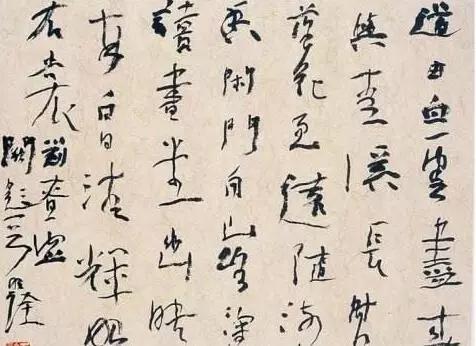 道由白雲盡春
與青溪長時
落花至遠隨流
香閑門向山路深
讀書堂幽映
每白日清輝照
衣裳
劉眘虛
闕題